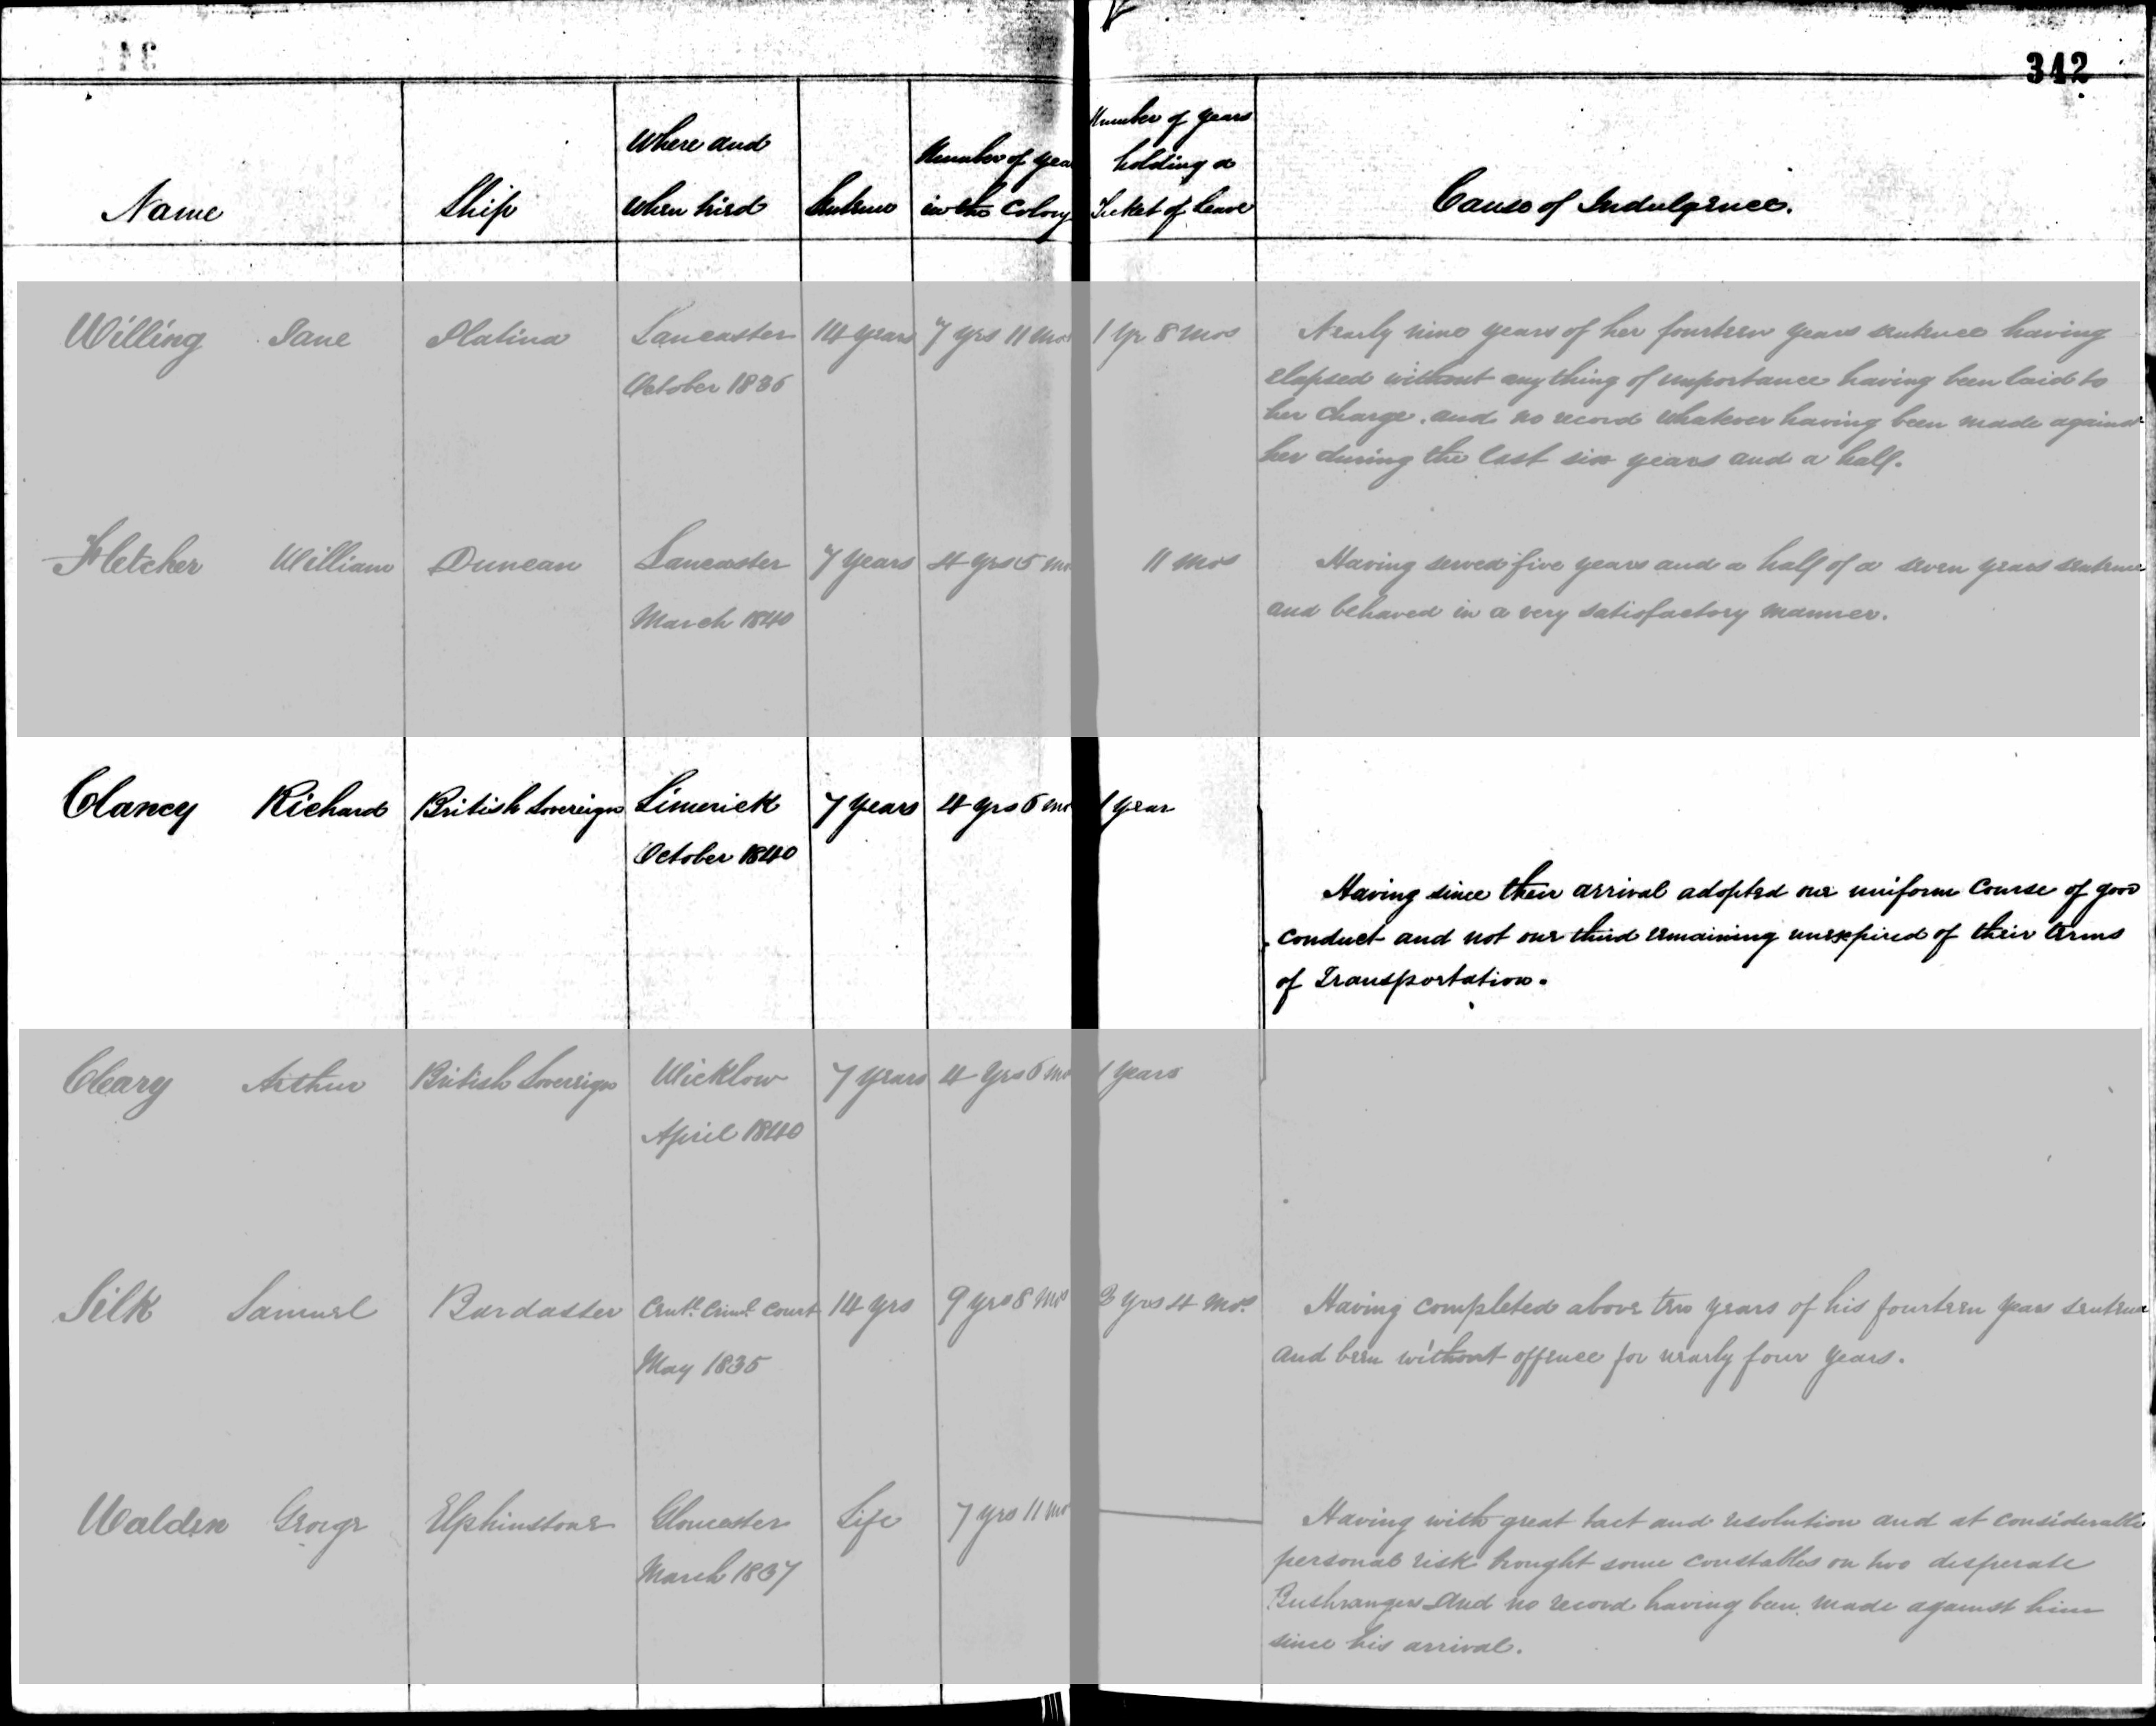 342
Name Ship Where and when tried Sentence Number of yea in the Colony Number of years holding a Ticket of Leave Cause of Indulgence.
Willing Jane Platina Lancaster 14 years 7 yrs 11 mos 1 yr 8 mos Nearly nine years of her fourteen years sentence having
October 1836 elapsed without anything of importance having been laid to
her charge, and no record whatever having been made against
her during the last six years and a half.
Fletcher William Duncan Lancaster 7 years 4 yrs 5 mo 11 mos Having served five years and a half of a seven years sentence
March 1840 and behaved in a very satisfactory manner.
Clancy Richard British Sovereign Limerick 7 years 4 yrs 6 mo 1 year
October 1840
Having since their arrival adopted one uniform course of good
conduct and not one third remaining unexpired of their terms
of Transportation.
Cleary Arthur British Sovereign Wicklow 7 years 4 yrs 6 mo 1 years
April 1840
Silk Samuel Bardaster Centl. Criml. Court 14 yrs 9 yrs 8 mos 3 yrs 4 mos. Having completed above ten years of his fourteen years sentence
May 1835 and been without offence for nearly four years.
Walden George Elphinstone Gloucester Life 7 yrs 11 mo Having with great tact and resolution and at considerable
March 1837 personal risk brought some constables on two desperate
Bushrangers and no record having been made against him
since his arrival.